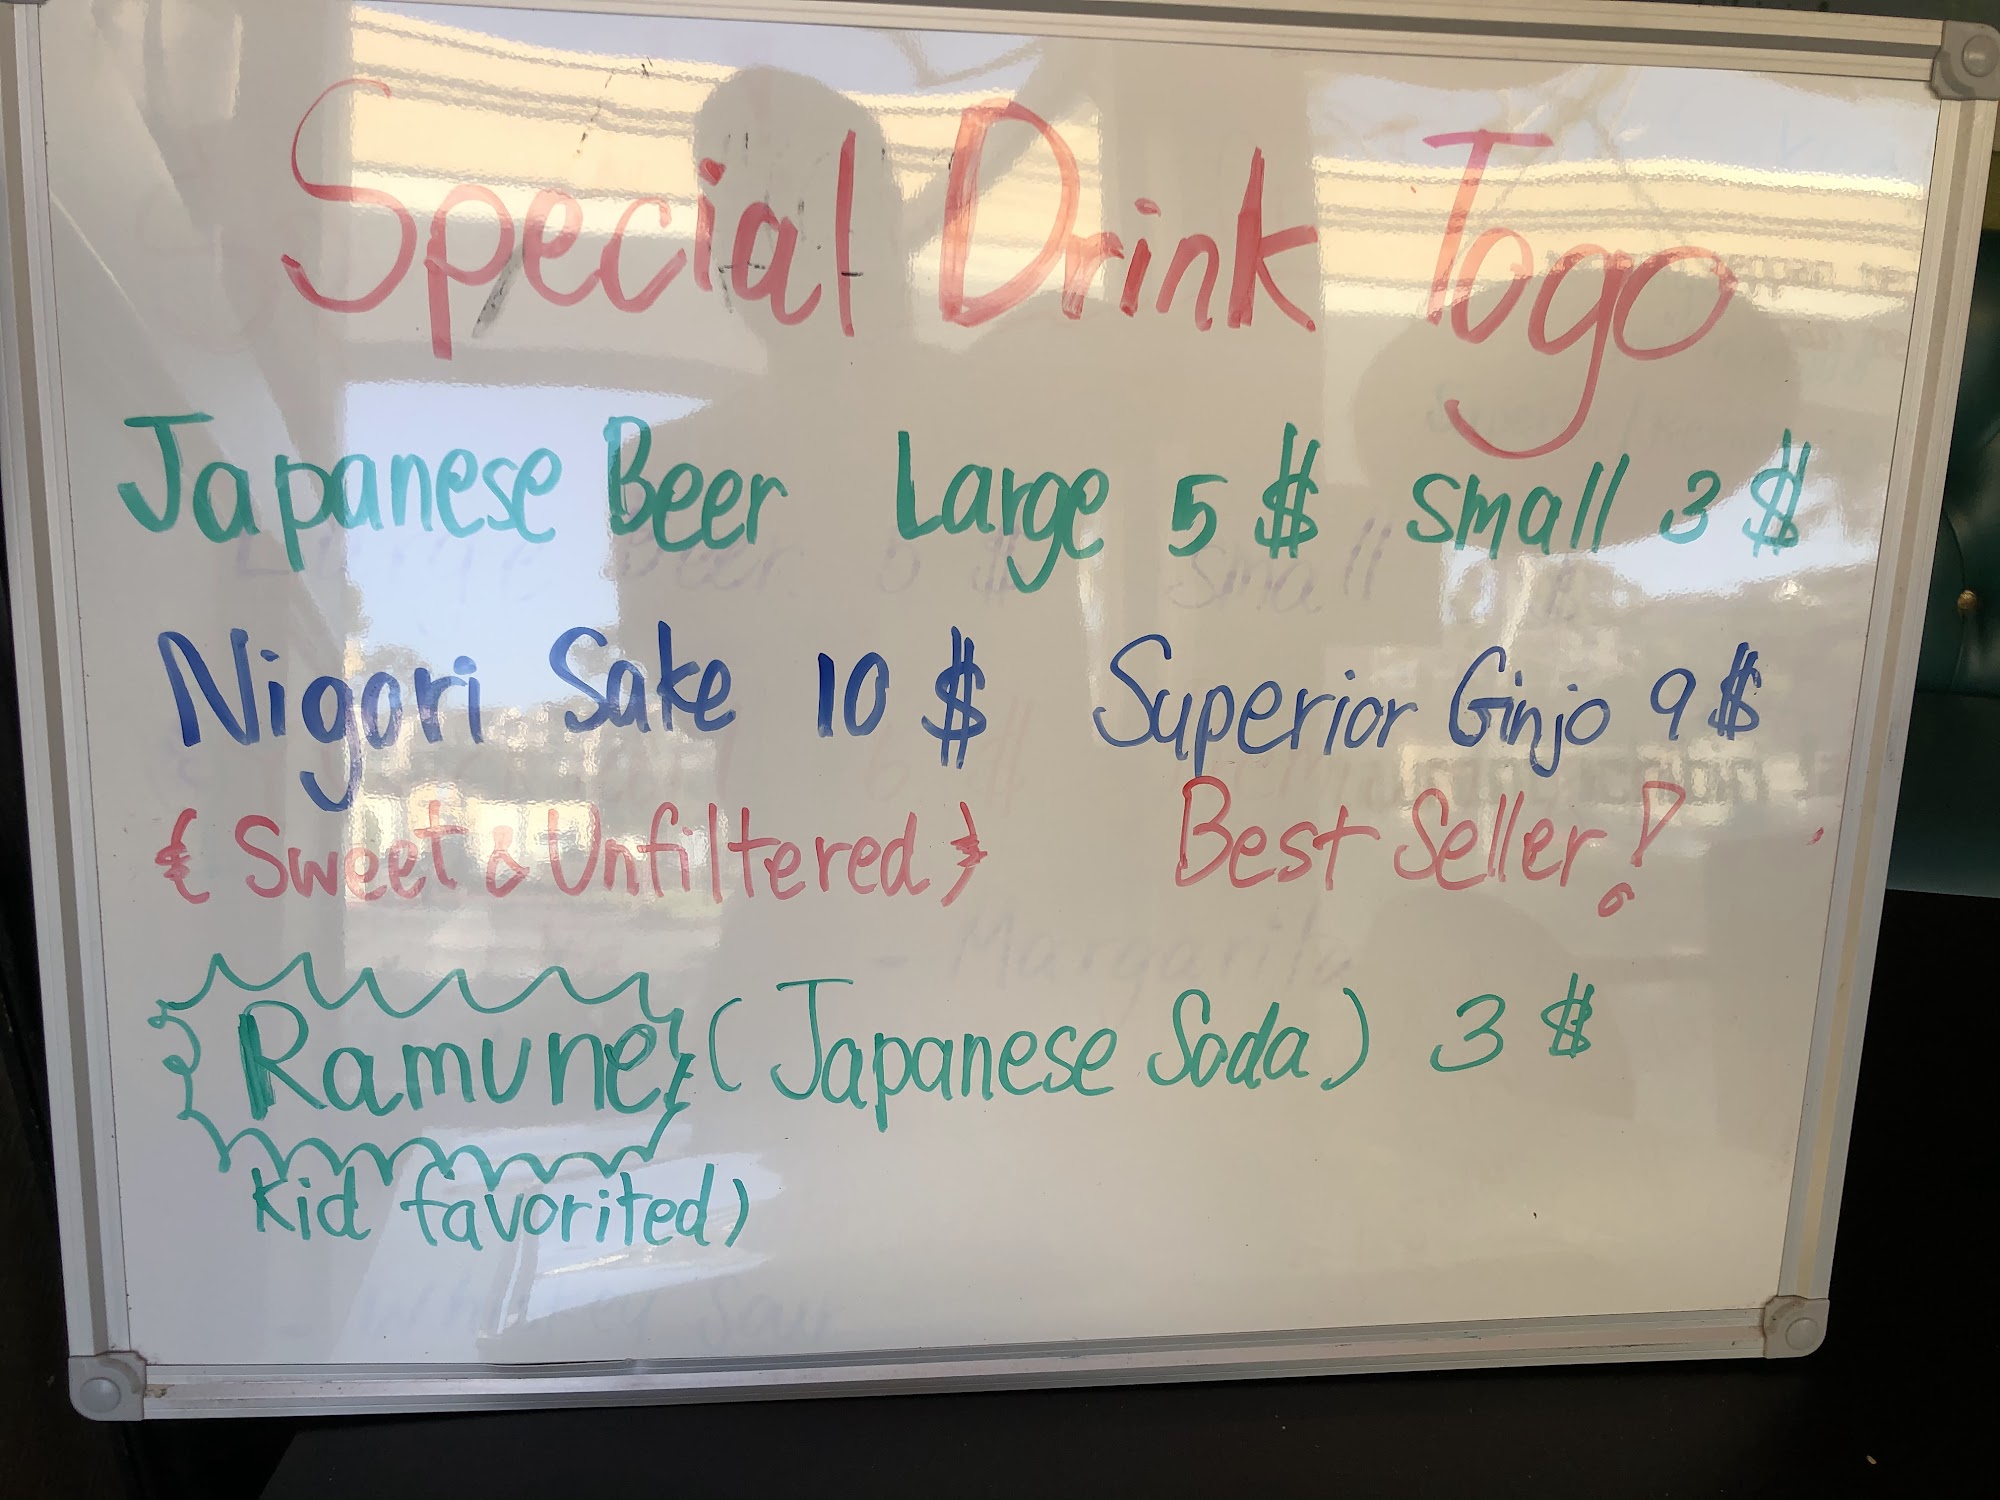 Special Drink Togo
Japanese Beer Large 5 $ Small 3 $
Nigori Sake 10 $ Superior Ginjo 9 $
{ Sweet & Unfiltered } Best Seller!
Ramune (Japanese Soda) 3 $
Kid favorited)
- Margarita